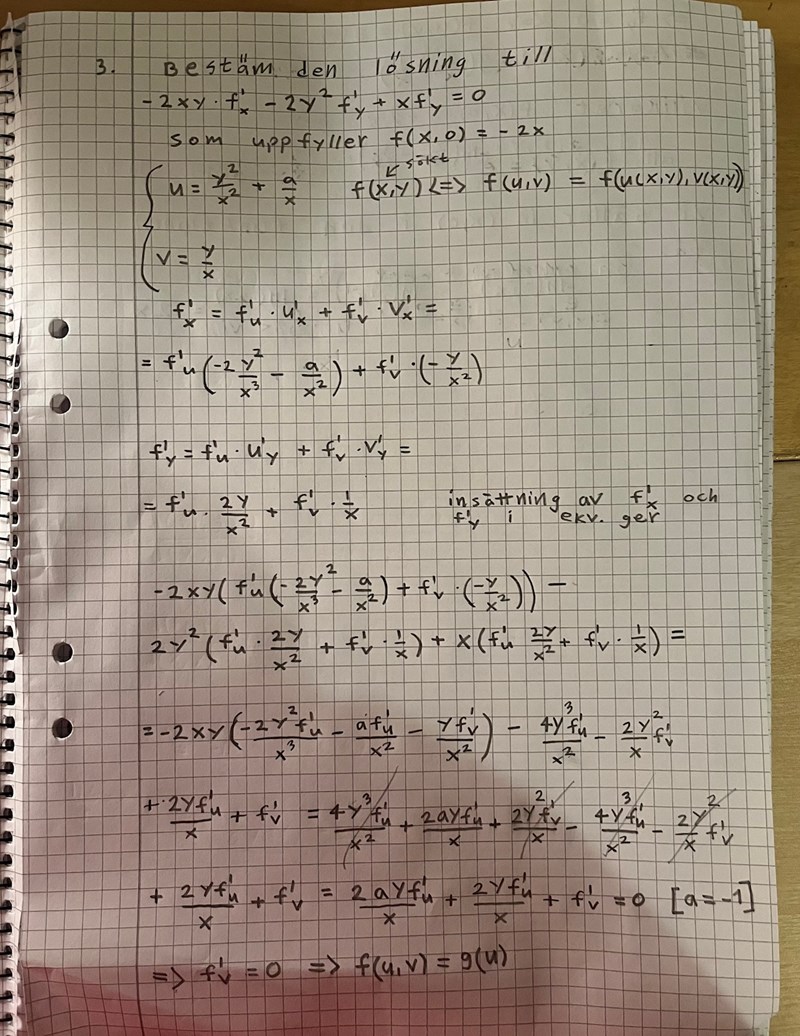 3. Bestäm den lösning till
-2xy · f'x - 2y² f'y + xf'y = 0
som uppfyller f(x,0) = -2x
sökt
{ u = y²/x² + a/x    f(x,y) <=> f(u,v) = f(u(x,y), v(x,y))
v = y/x
f'x = f'u · u'x + f'v · v'x =
= f'u (-2 y²/x³ - a/x²) + f'v · (-y/x²)
f'y = f'u · u'y + f'v · v'y =
= f'u · 2y/x² + f'v · 1/x    insättning av f'x och
f'y i ekv. ger
-2xy(f'u(-2y²/x³ - a/x²) + f'v · (-y/x²)) -
2y²(f'u · 2y/x² + f'v · 1/x) + x(f'u 2y/x² + f'v · 1/x) =
= -2xy(-2y²f'u/x³ - af'u/x² - yf'v/x²) - 4y³f'u/x² - 2y²/x f'v
+ 2yf'u/x + f'v = 4y³f'u/x² + 2ayf'u/x + 2y²f'v/x - 4y³f'u/x² - 2y²/x f'v
+ 2yf'u/x + f'v = 2ayf'u/x + 2yf'u/x + f'v = 0 [a = -1]
=> f'v = 0 => f(u,v) = g(u)